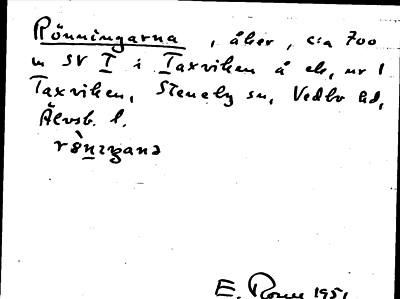 Rönningarna , åker, c:a 700
m SV T i Taxviken å ek, nr 1
Taxviken, Steneby sn, Vedbo hd,
Älvsb. l.
E. 1951